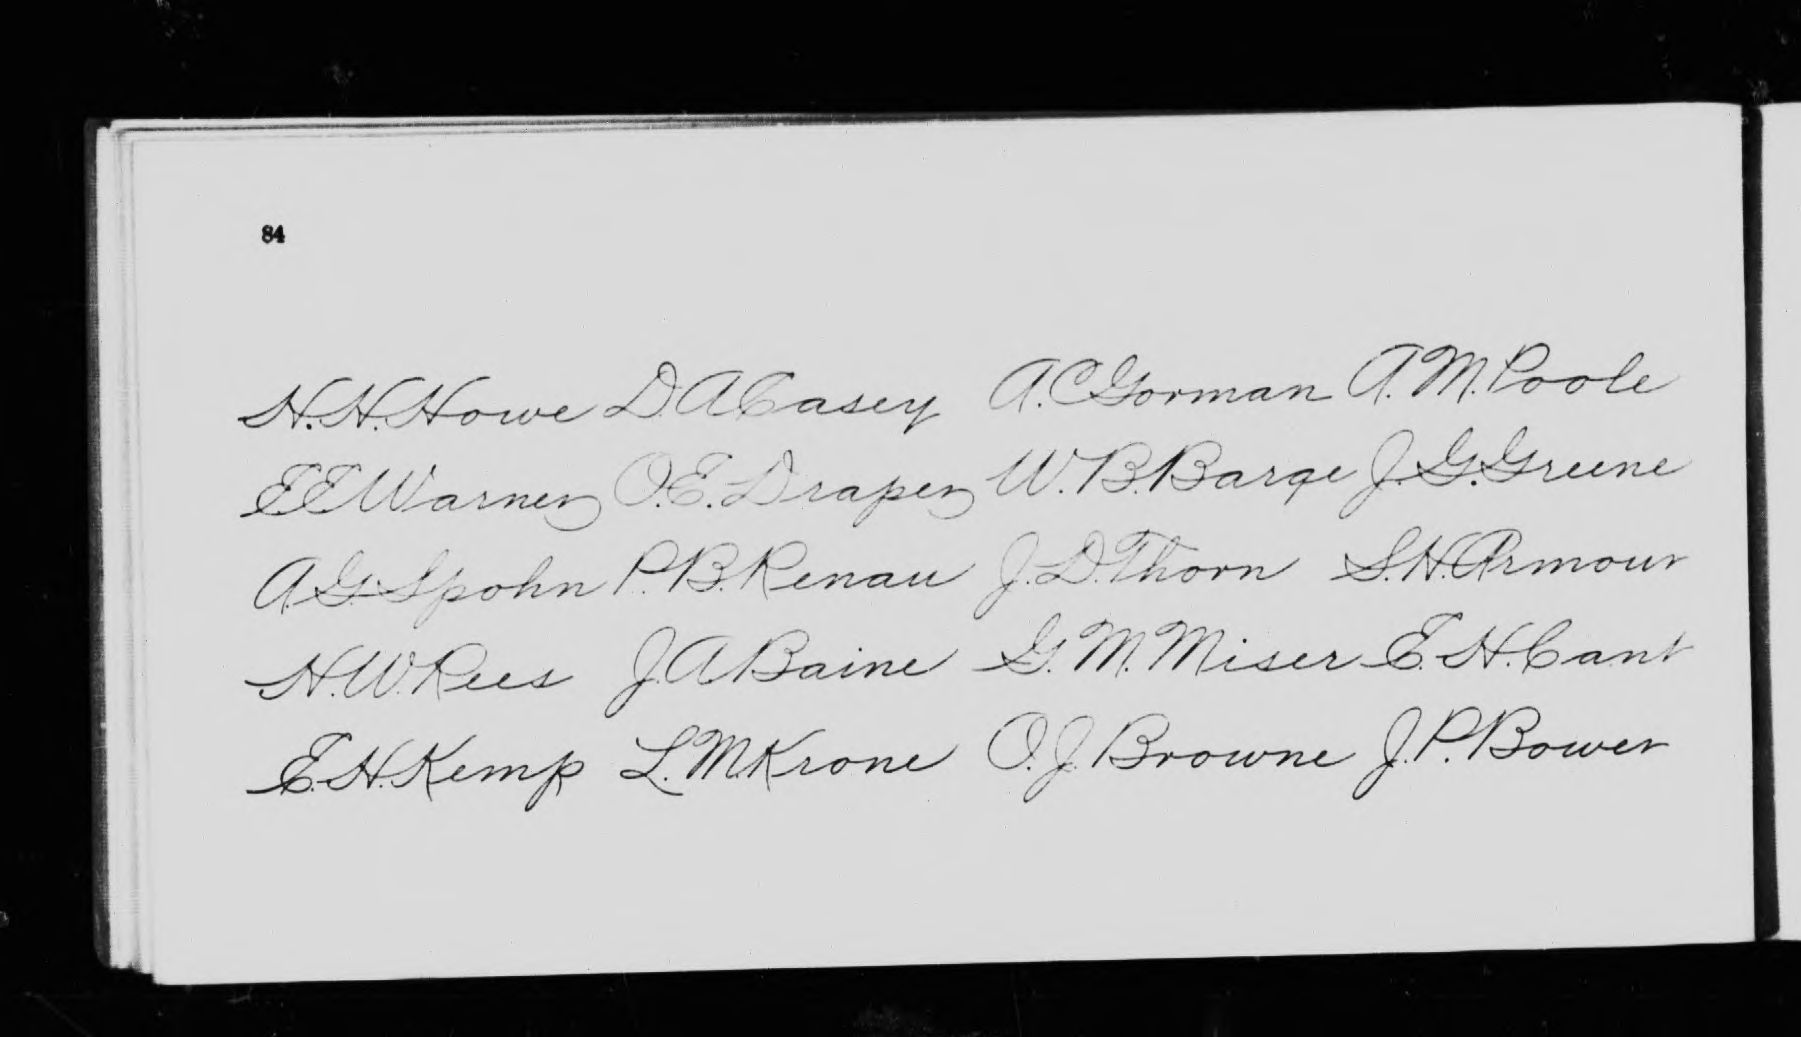 84
H.H.Howe D.A.Casey A.C.Gorman A.M.Poole
E.E.Warner O.E.Draper W.B.Barge J.G.Greene
A.G.Spohn P.B.Renau J.D.Thorn S.H.Armour
H.W.Rees J.A.Baine G.M.Miser E.H.Cant
E.H.Kemp L.M.Krone O.J.Browne J.P.Bower